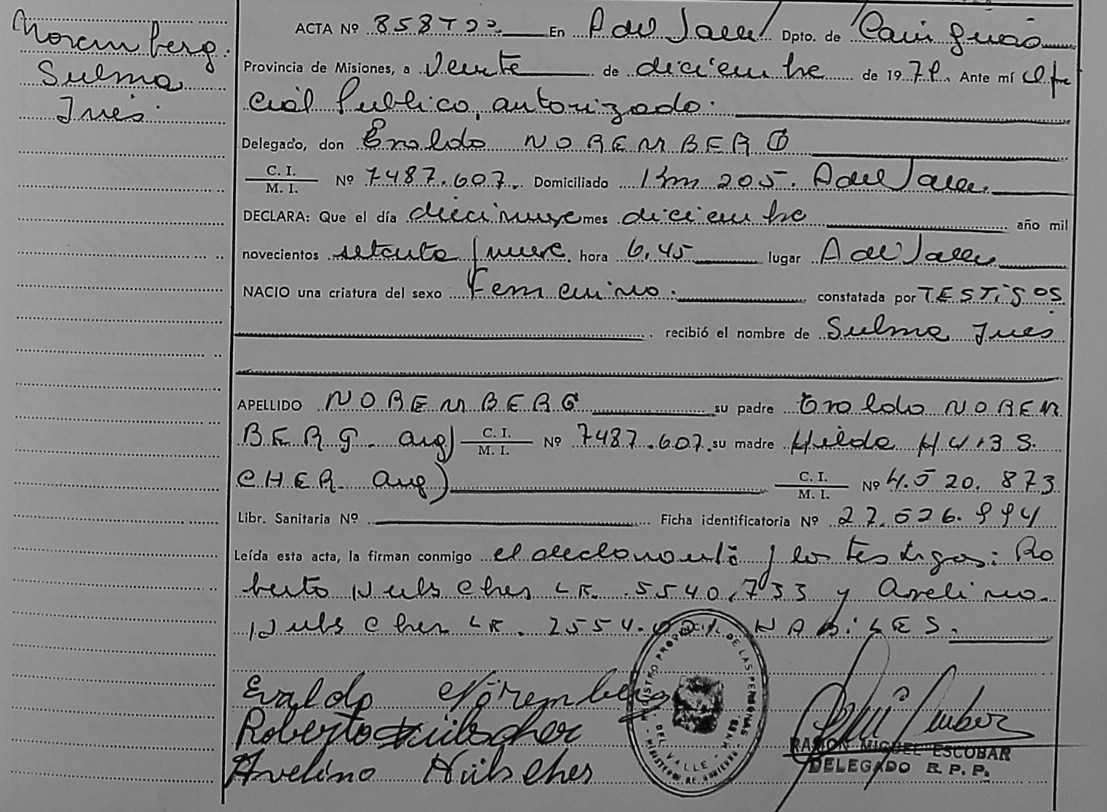 Noremberg
Sulma
Inés
ACTA Nº 858 T En A del Valle Dpto. de Cainguás
Provincia de Misiones, a veinte de diciembre de 197 Ante mí el ofi
cial Publico, autorizado.
Delegado, don Eraldo NOREMBERG
C. I.
M. I. Nº 7487.607. Domiciliado Km 205. A del Valle.
DECLARA: Que el día diecinueve mes diciembre año mil
novecientos setenta y nueve hora 6,45 lugar A del Valle
NACIO una criatura del sexo Femenino. constatada por TESTIGOS
recibió el nombre de Sulma Ines
APELLIDO NOREMBERG su padre Eraldo NOREM
BERG. arg) C. I.
M. I. Nº 7487.607. su madre Hilda HULBS
CHER arg) C. I.
M. I. Nº 4.520.873
Libr. Sanitaria Nº Ficha identificatoria Nº 27.526.994
Leída esta acta, la firman conmigo el declarante y los testigos: Ro
berto Hulscher LE. 5540.733 y Avelino
Hulscher LE. 2554. HABILES.
Evaldo Nöremberg
Roberto Hülscher
Avelino Hülscher
REGISTRO PROVINCIAL DE LAS PERSONAS
DEL VALLE
RAMON MIGUEL ESCOBAR
DELEGADO R. P. P.